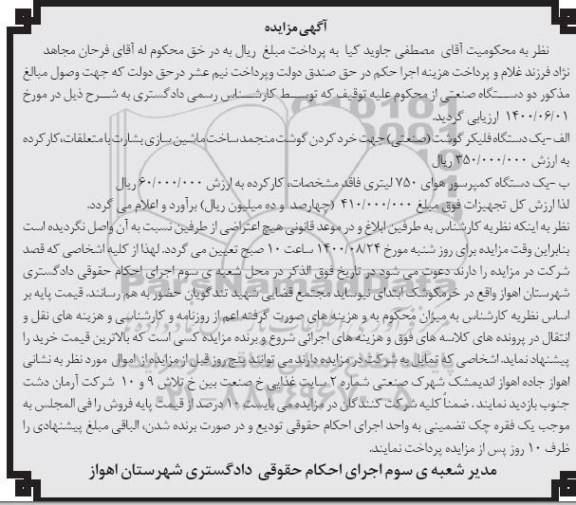 آگهی مزایده
نظر به محکومیت آقای مصطفی جاوید کیا به پرداخت مبلغ ریال به در حق محکوم له آقای فرحان مجاهد
نژاد فرزند غلام و پرداخت هزینه اجرا حکم در حق صندق دولت وپرداخت نیم عشر درحق دولت که جهت وصول مبالغ
مذکور دو دستگاه صنعتی از محکوم علیه توقیف که توسط کارشناس رسمی دادگستری به شرح ذیل در مورخ
۱۴۰۰/۰۶/۰۱ ارزیابی گردید.
الف -یک دستگاه فلیکر گوشت (صنعتی) جهت خرد کردن گوشت منجمد ساخت ماشین سازی بشارت با متعلقات، کار کرده
به ارزش ۳۵۰/۰۰۰/۰۰۰ ریال
ب -یک دستگاه کمپرسور هوای ۷۵۰ لیتری فاقد مشخصات، کار کرده به ارزش ۶۰/۰۰۰/۰۰۰ ریال
لذا ارزش کل تجهیزات فوق مبلغ ۴۱۰/۰۰۰/۰۰۰ (چهارصد و ده میلیون ریال) برآورد و اعلام می گردد.
نظر به اینکه نظریه کارشناس به طرفین ابلاغ و در موعد قانونی هیچ اعتراضی از طرفین نسبت به آن واصل نگردیده است
بنابراین وقت مزایده برای روز شنبه مورخ ۱۴۰۰/۰۸/۲۴ ساعت ۱۰ صبح تعیین می گردد. لهذا از کلیه اشخاصی که قصد
شرکت در مزایده را دارند دعوت می شود در تاریخ فوق الذکر در محل شعبه ی سوم اجرای احکام حقوقی دادگستری
شهرستان اهواز واقع در خرمکوشک ابتدای نیوساید مجتمع قضایی شهید تندگویان حضور به هم رسانند. قیمت پایه بر
اساس نظریه کارشناس به میزان محکوم به و هزینه های صورت گرفته اعم از روزنامه و کارشناسی و هزینه های نقل و
انتقال در پرونده های کلاسه های فوق و هزینه های اجرائی شروع و برنده مزایده کسی است که بالاترین قیمت خرید را
پیشنهاد نماید. اشخاصی که تمایل به شرکت در مزایده دارند می توانند پنج روز قبل از مزایده از اموال مورد نظر به نشانی
اهواز جاده اهواز اندیمشک شهرک صنعتی شماره ۲ سایت غذایی خ صنعت بین خ تلاش ۹ و ۱۰ شرکت آرمان دشت
جنوب بازدید نمایند. ضمناً کلیه شرکت کنندگان در مزایده می بایست ۱۰ درصد از قیمت پایه فروش را فی المجلس به
موجب یک فقره چک تضمینی به واحد اجرای احکام حقوقی تودیع و در صورت برنده شدن، الباقی مبلغ پیشنهادی را
ظرف ۱۰ روز پس از مزایده پرداخت نمایند.
مدیر شعبه ی سوم اجرای احکام حقوقی دادگستری شهرستان اهواز
ParsNamadData